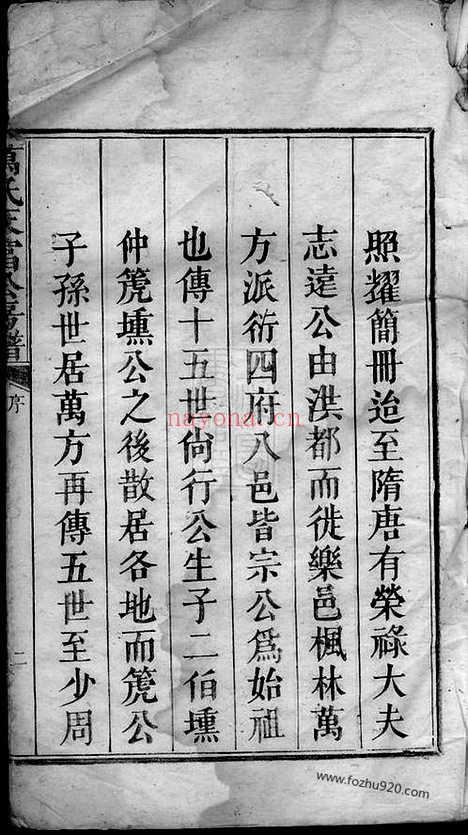 照耀簡冊迨至隋唐有榮祿大夫
志遠公由洪都而徙樂邑楓林萬
方派衍四府八邑皆宗公爲始祖
也傳十五世尙行公生子二伯壎
仲篪壎公之後散居各地而篪公
子孫世居萬方再傳五世至少周
萬氏
房譜
序
二
nayona.cn
www.fozhu920.com